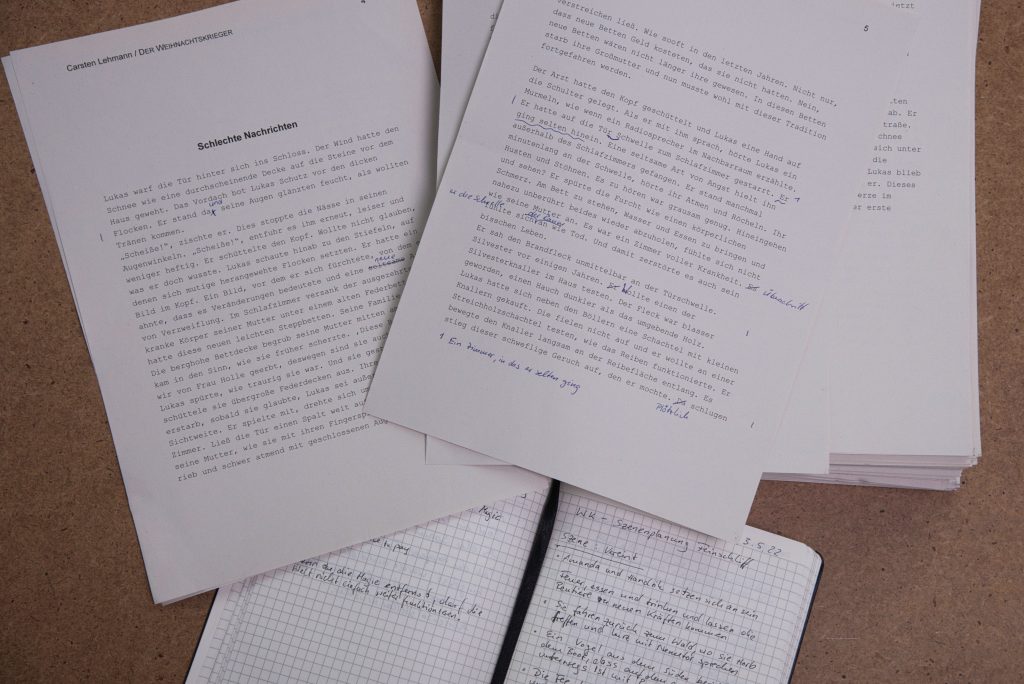 4
Carsten Lehmann / DER WEIHNACHTSKRIEGER
Schlechte Nachrichten
Lukas warf die Tür hinter sich ins Schloss. Der Wind hatte den
Schnee wie eine durchscheinende Decke auf die Steine vor dem
Haus geweht. Das Vordach bot Lukas Schutz vor den dicken
Flocken. Er stand da, und seine Augen glänzten feucht, als wollten
Tränen kommen.
„Scheiße!", zischte er. Dies stoppte die Nässe in seinen
Augenwinkeln. „Scheiße!", entfuhr es ihm erneut, leiser und
weniger heftig. Er schüttelte den Kopf. Wollte nicht glauben,
was er doch wusste. Lukas schaute hinab zu den Stiefeln, auf
denen sich mutige herangewehte Flocken setzten. Er hatte ein
Bild im Kopf. Ein Bild, vor dem er sich fürchtete, von dem
ahnte, dass es Veränderungen bedeutete und eine neue
von Verzweiflung. Im Schlafzimmer versank der ausgezehrte
kranke Körper seiner Mutter unter einem alten Federbett
hatte diese neuen leichten Steppbetten. Seine Familie
Die berghohe Bettdecke begrub seine Mutter mitten
kam in den Sinn, wie sie früher scherzte. „Diese
wir von Frau Holle geerbt, deswegen sind sie
Lukas spürte, wie traurig sie war. Und sie
schüttele sie übergroße Federdecken aus. Ihr
erstarb, sobald sie glaubte, Lukas sei
Sichtweite. Er spielte mit, drehte sich
Zimmer. Ließ die Tür einen Spalt weit
seine Mutter, wie sie mit ihren Fingerspi
rieb und schwer atmend mit geschlossenen Au
5
verstreichen ließ. Wie sooft in den letzten Jahren. Nicht nur,
dass neue Betten Geld kosteten, das sie nicht hatten. Nein,
neue Betten wären nicht länger ihre gewesen. In diesen Betten
starb ihre Großmutter und nun musste wohl mit dieser Tradition
fortgefahren werden.
Der Arzt hatte den Kopf geschüttelt und Lukas eine Hand auf
die Schulter gelegt. Als er mit ihm sprach, hörte Lukas ein
Murmeln, wie wenn ein Radiosprecher im Nachbarraum erzählte.
Er hatte auf die Tür Schwelle zum Schlafzimmer gestarrt. Er 1
ging selten hinein. Eine seltsame Art von Angst hielt ihn
außerhalb des Schlafzimmers gefangen. Er stand manchmal
minutenlang an der Schwelle, hörte ihr Atmen, und Röcheln,
Husten und Stöhnen. Es zu hören war grausam genug. Hineingehen
und sehen? Er spürte die Furcht wie einen körperlichen
Schmerz. Am Bett zu stehen, Wasser und Essen zu bringen und
nahezu unberührt beides wieder abzuholen, fühlte sich nicht
wie seine Mutter an. Es war ein Zimmer voller Krankheit.
wie Tod. Und damit zerstörte es auch sein
bisschen Leben.
Er sah den Brandfleck unmittelbar an der Türschwelle.
Silvester vor einigen Jahren. Er wollte einen der
Silvesterknaller im Haus testen. Der Fleck war blasser
geworden, einen Hauch dunkler als das umgebende Holz.
Lukas hatte sich neben den Böllern eine Schachtel mit kleinen
Knallern gekauft. Die fielen nicht auf und er wollte an einer
Streichholzschachtel testen, wie das Reiben funktionierte. Er
bewegte den Knaller langsam an der Reibefläche entlang. Es
stieg dieser schweflige Geruch auf, den er mochte. schlugen
Plötzlich
1 Ein Zimmer, in das er selten ging
jetzt
ab. Er
traße.
chnee
sich unter
die
Lukas blieb
er. Dieses
erze im
er erste
Magie
die Magie entfernst, darf die
Welt nicht einfach weiter funktionieren.
WK - Szenenplanung Feinschliff
3.5.22
Szene: Vereint
Feuer, essen und trinken und lassen die
neuen Kräften kommen
So fahren zurück zum Wald, wo sie
treffen und kurz mit sprechen
Ein Vogel aus dem Süden
dem Boot, dass auf dem
unterwegs ist mit
Die